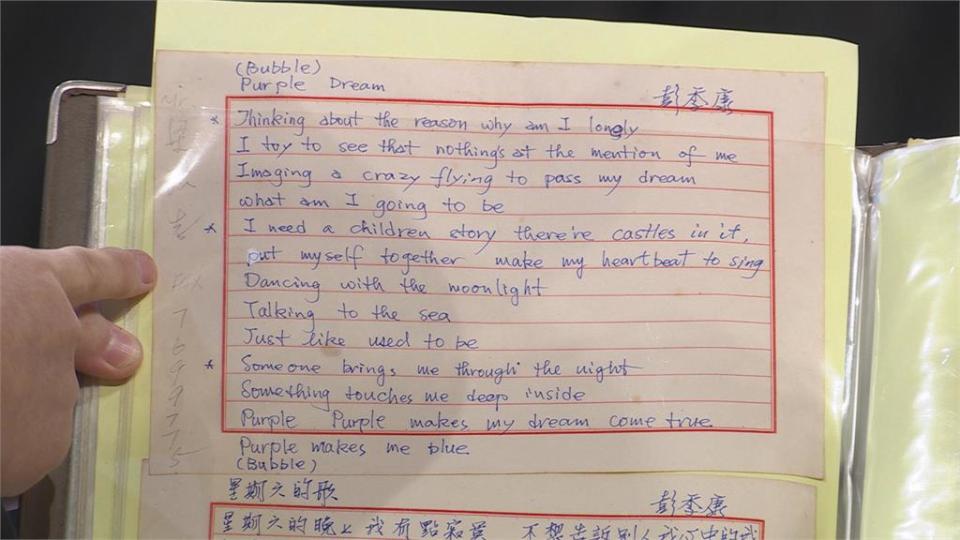 (Bubble)
Purple Dream
彭季康
* Thinking about the reason why am I lonely
I try to see that nothing's at the mention of me
Imaging a crazy flying to pass my dream
what am I going to be
* I need a children story there're castles in it,
put myself together make my heartbeat to sing
Dancing with the moonlight
Talking to the sea
Just like used to be
* Someone brings me through the night
Something touches me deep inside
Purple Purple makes my dream come true.
Purple makes me blue.
(Bubble)
星期六的歌
彭季康
星期六的晚上 我有點寂寞 不想告訴別人我心中的